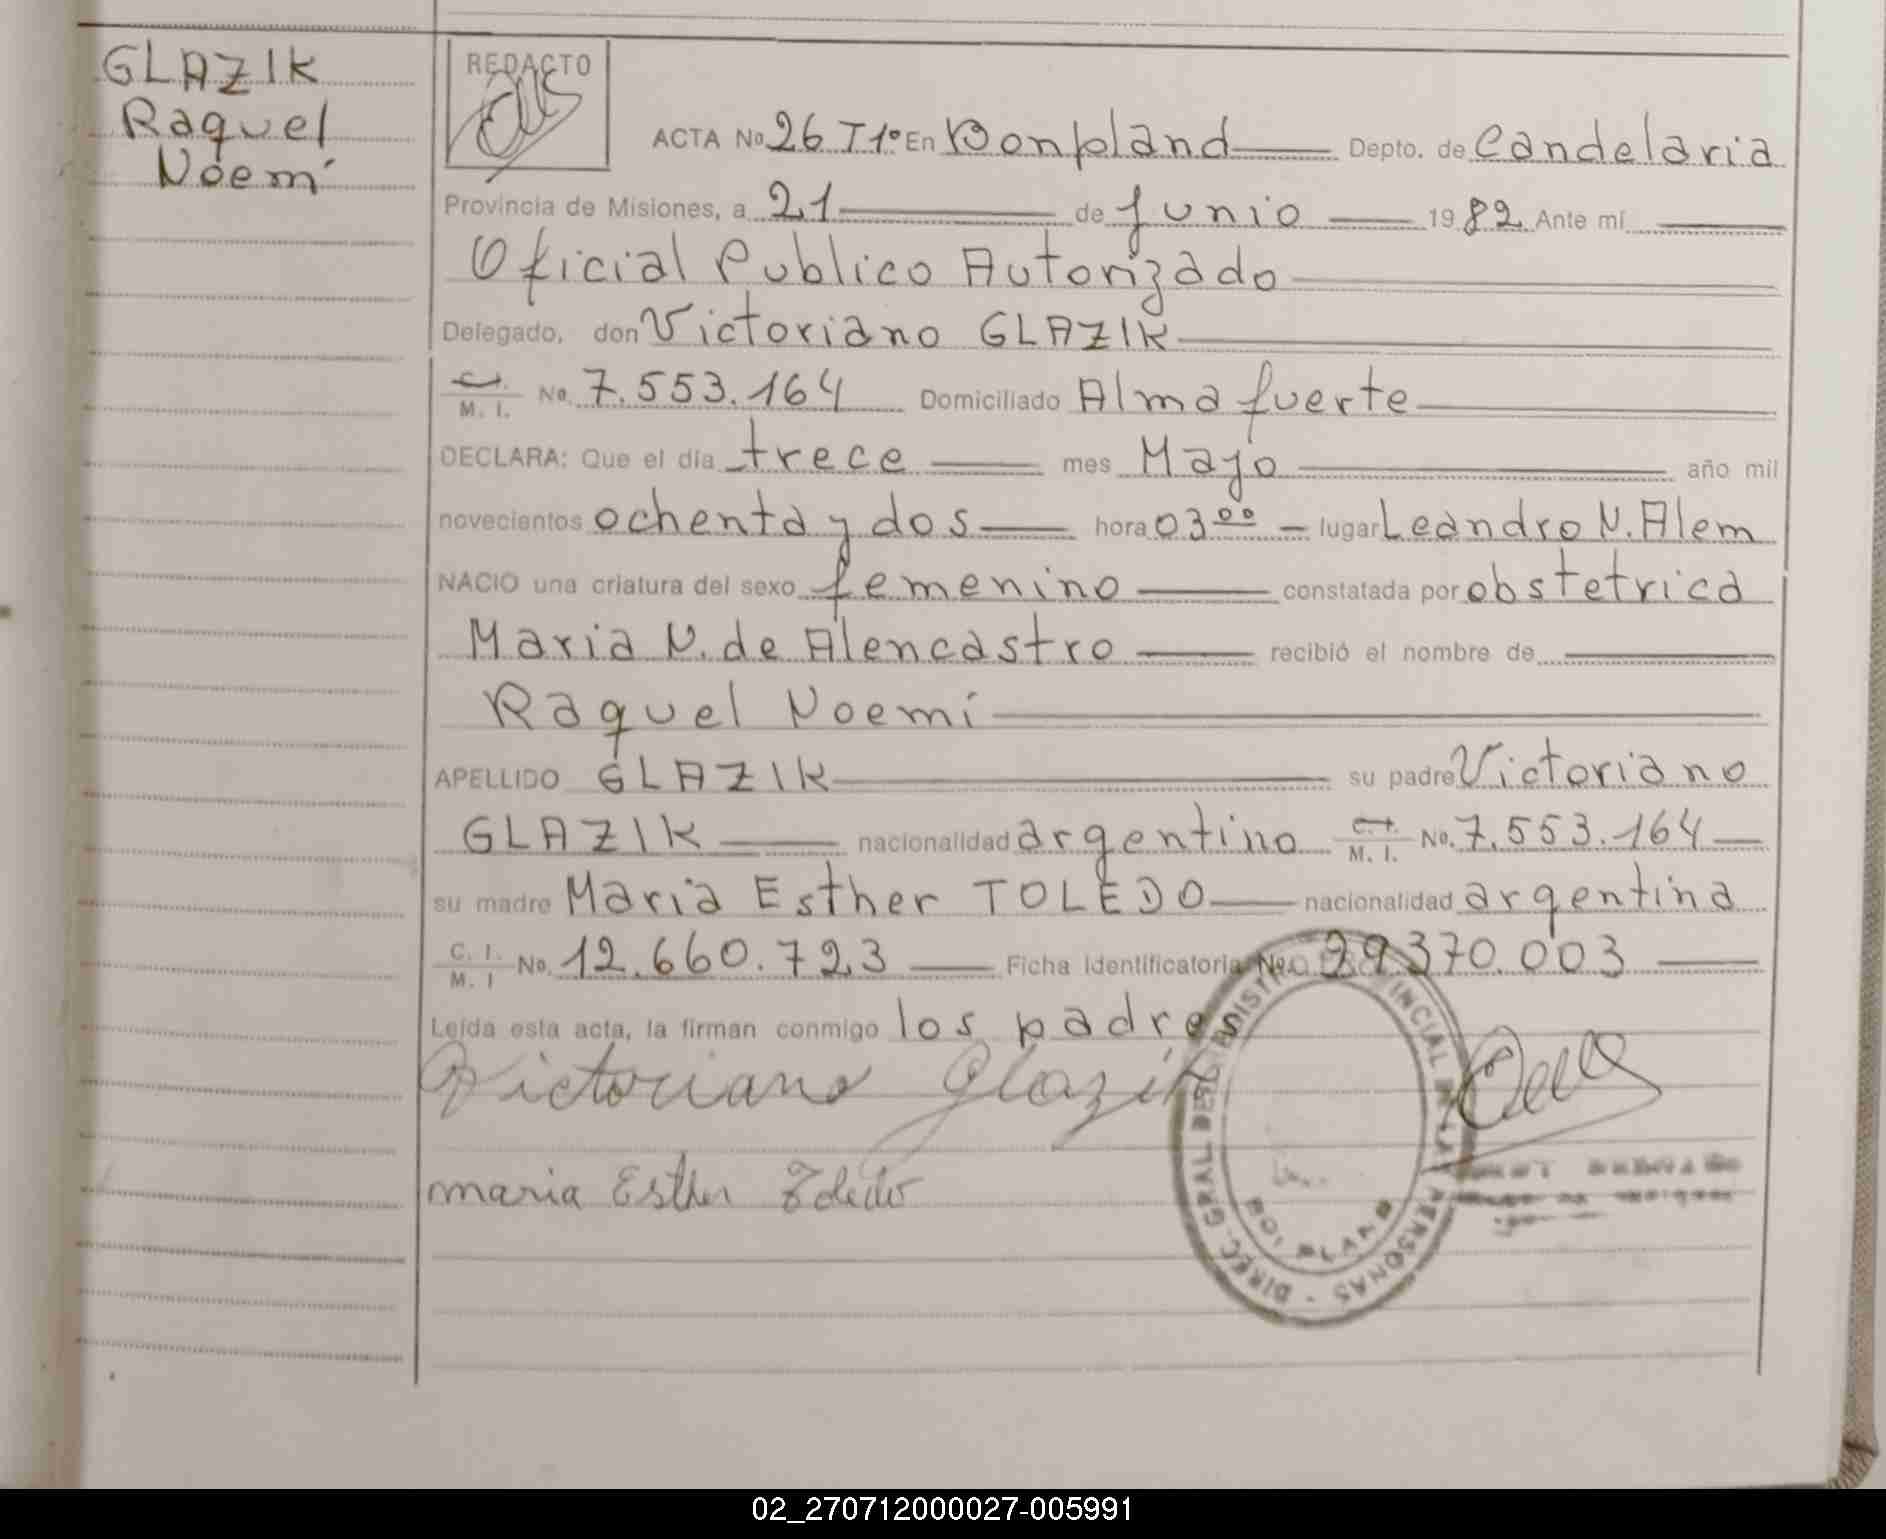 GLAZIK
Raquel
Noemí
REDACTO
ACTA No 26 T1º En Bonpland Depto. de Candelaria
Provincia de Misiones, a 21 de junio 1982 Ante mí
Oficial Publico Autorizado
Delegado, don Victoriano GLAZIK
M. I. No. 7.553.164 Domiciliado Alma fuerte
DECLARA: Que el día trece mes Mayo año mil
novecientos ochenta y dos hora 03 00 lugar Leandro N. Alem
NACIO una criatura del sexo femenino constatada por obstetrica
Maria N. de Alencastro recibió el nombre de
Raquel Noemí
APELLIDO GLAZIK su padre Victoriano
GLAZIK nacionalidad argentino C. I. M. I. No. 7.553.164
su madre Maria Esther TOLEDO nacionalidad argentina
C. I. M. I No. 12.660.723 Ficha Identificatoria No. 29.370.003
Leída esta acta, la firman conmigo los padres
Victoriano Glazik
maria Esther Toledo
DIREC. GRAL DEL REGISTRO PROVINCIAL DE LAS PERSONAS
BONPLAND
02_270712000027-005991